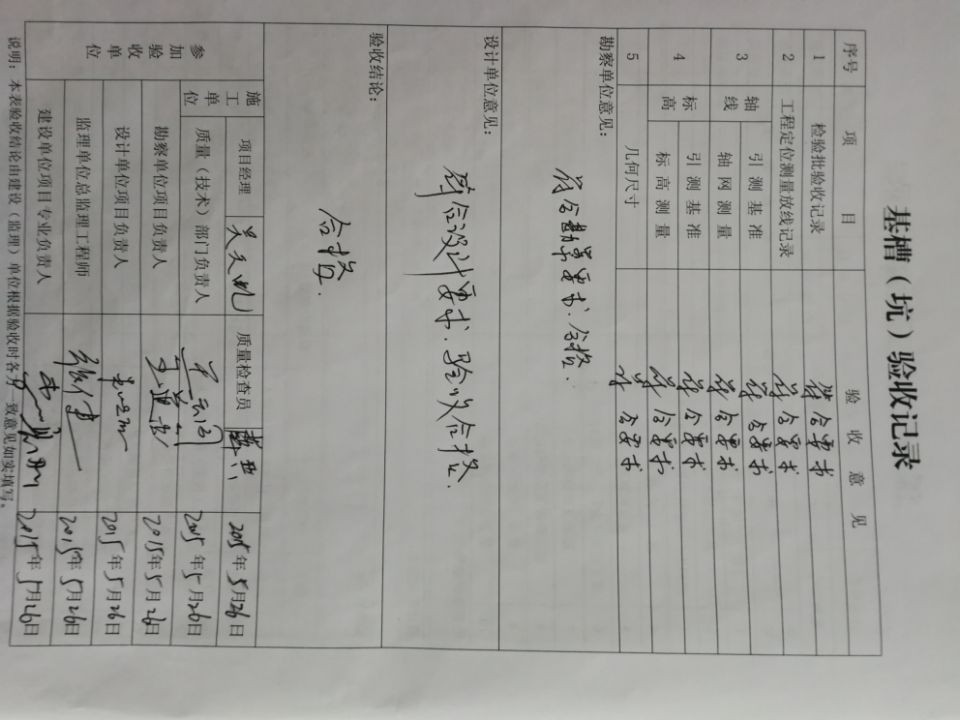 基槽（坑）验收记录
序号 项 目 验 收 意 见
1 检验批验收记录 符合要求
2 工程定位测量放线记录 符合要求
3 轴线 引测基准 符合要求
轴网测量 符合要求
4 标高 引测基准 符合要求
标高测量 符合要求
5 几何尺寸 符合要求
勘察单位意见：
符合勘察要求.合格.
设计单位意见：
符合设计要求.验收合格.
验收结论：
合格.
参加验收单位
施工单位 项目经理 质量检查员 2015年5月26日
质量（技术）部门负责人 2015年5月26日
勘察单位项目负责人 2015年5月26日
设计单位项目负责人 2015年5月26日
监理单位总监理工程师 2015年5月26日
建设单位项目专业负责人 2015年5月26日
说明：本表验收结论由建设（监理）单位根据验收时各方一致意见如实填写。